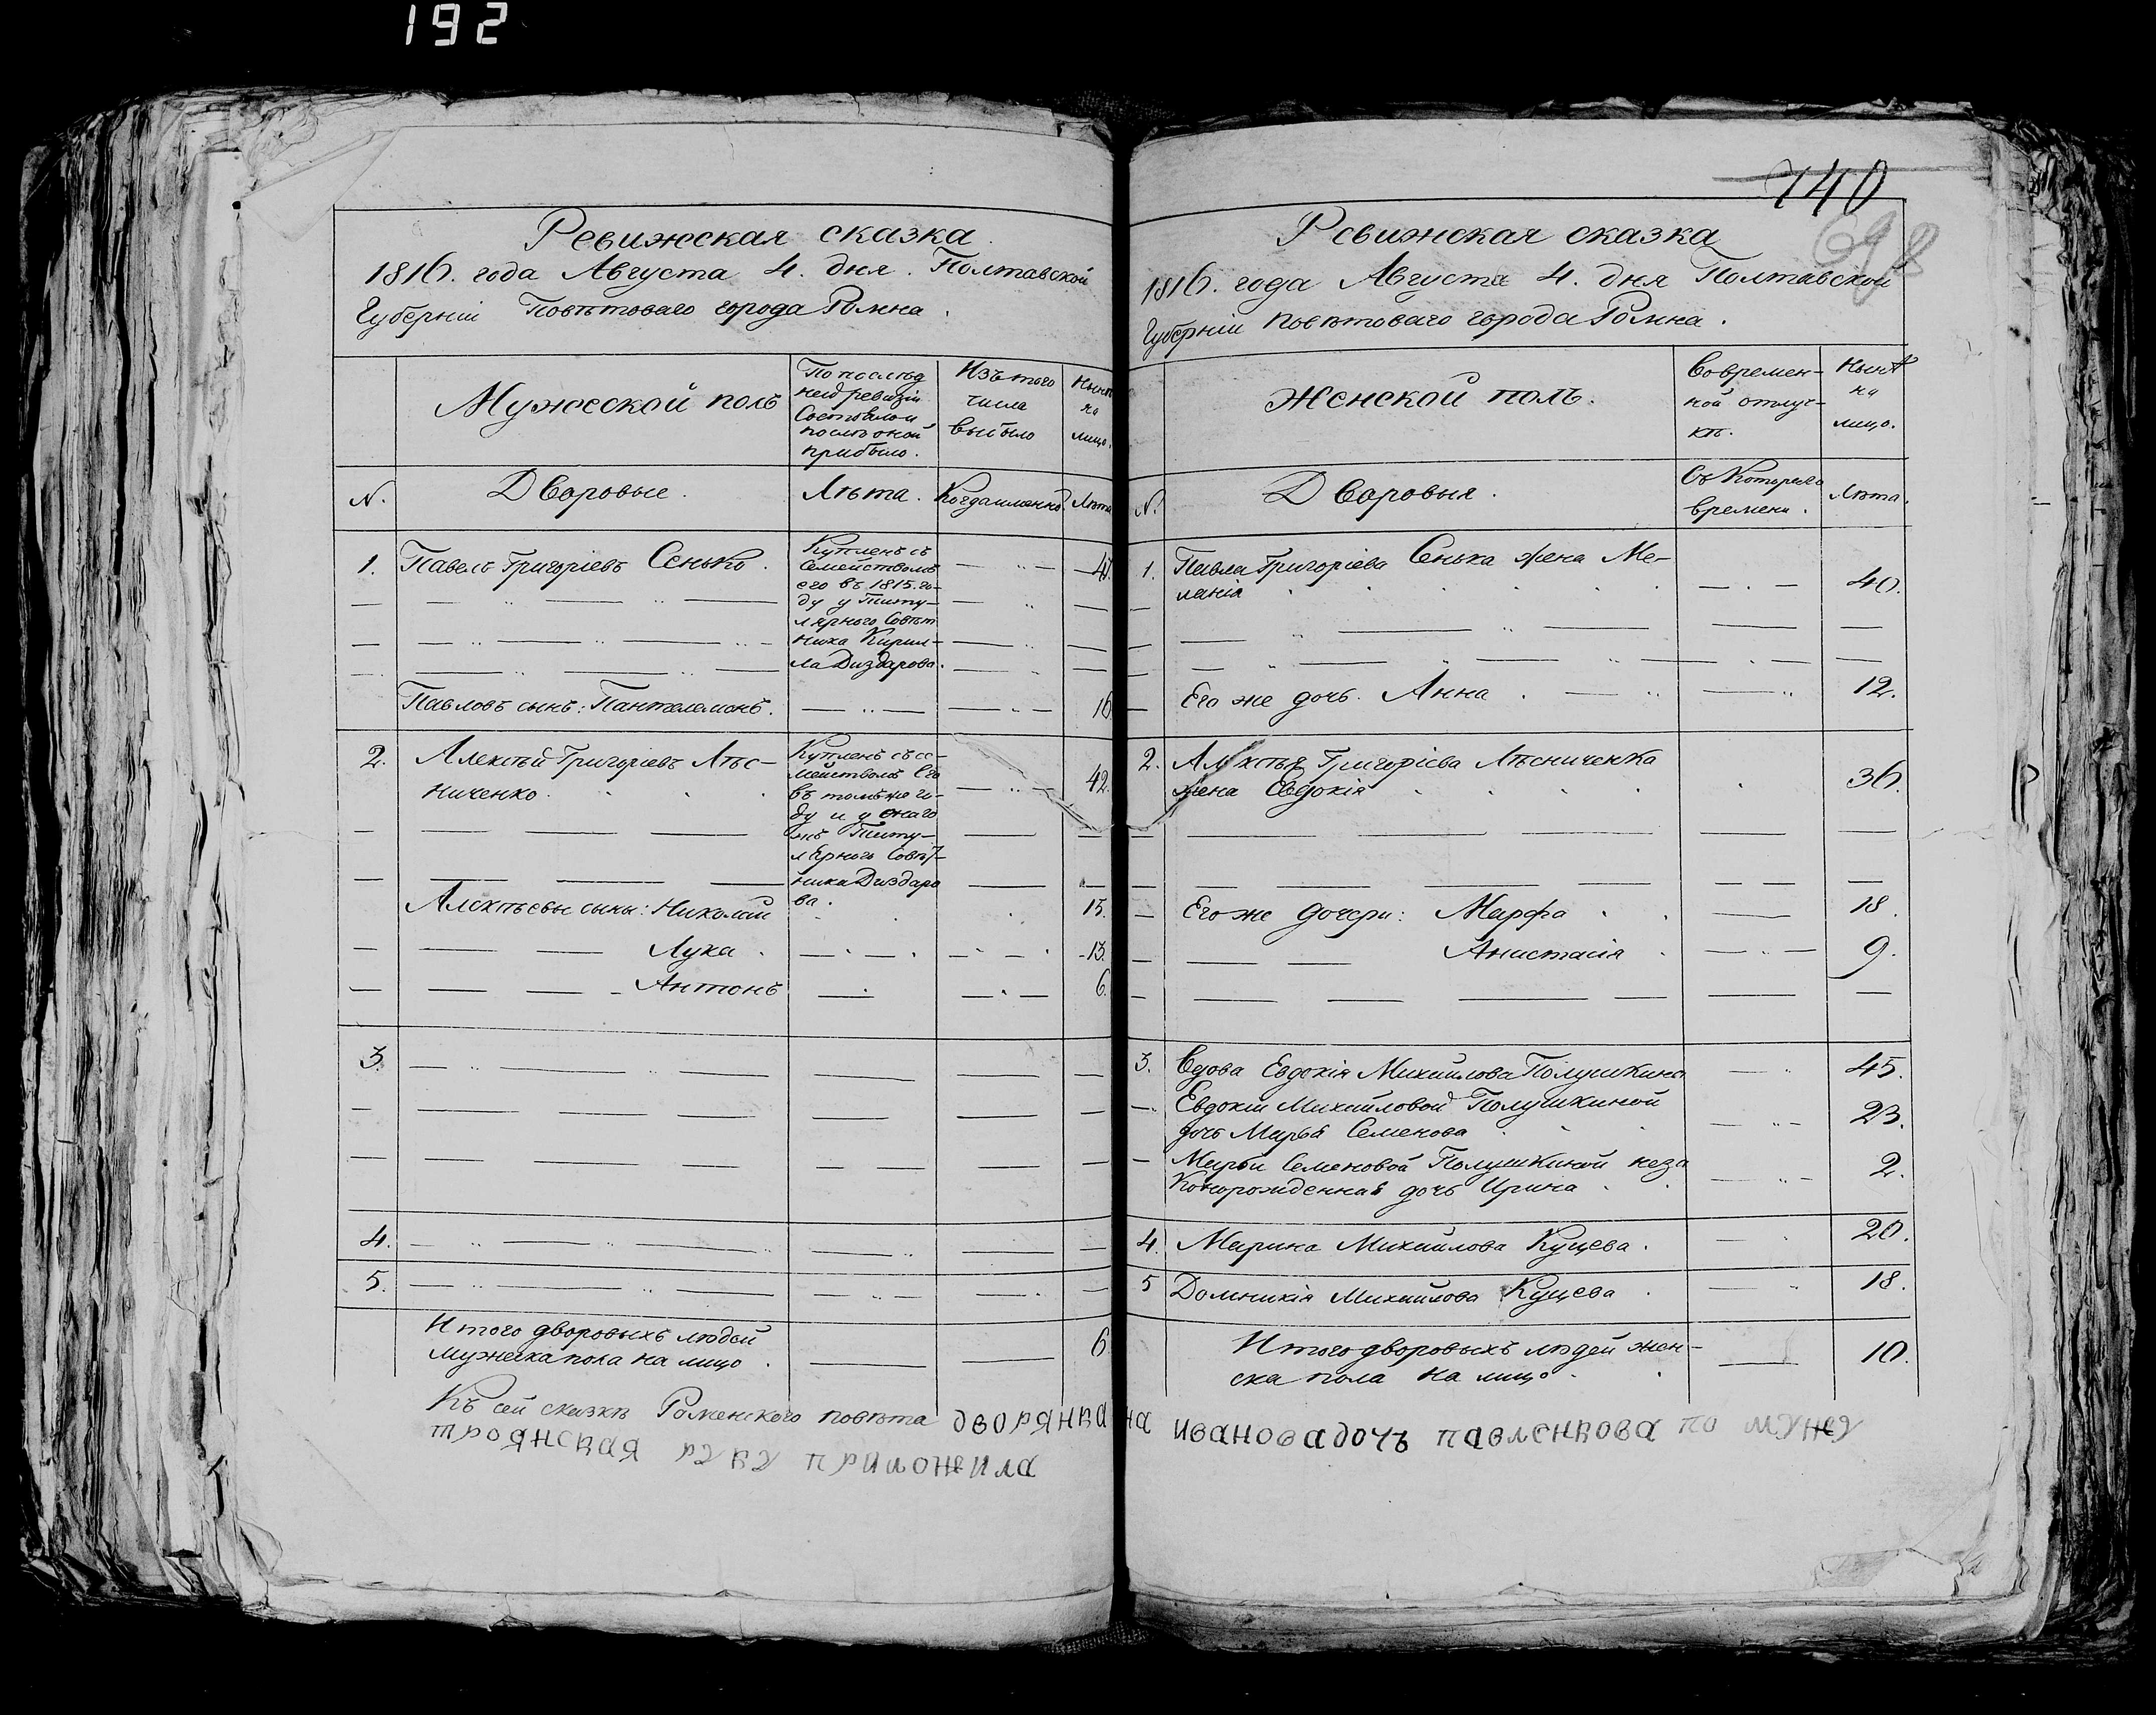 192
740
698
Ревижская сказка
1816. года Августа 4. дня. Полтавской
Губерніи Повѣтоваго города Ромна.
Мужеской полъ
По послѣд
ней ревизіи
Состояло и
послѣ оной
прибыло.
Изъ того
числа
выбыло
Нынѣ
на
лицо.
N.
Дворовые.
Лѣта.
Когда именно
Лѣта
1.
Павелъ Григоріевъ Сенько.
Купленъ съ
Семействомъ
его въ 1815. го-
ду у Титу-
лярного Совѣт
ника Кирил-
ла Диздарова.
41.
Павловъ сынъ: Пантелемонъ.
16
2.
Алексѣй Григоріевъ Лѣс-
ниченко.
Купленъ съ се-
мействомъ Его
въ томъ же го-
ду и у онаго
жъ Титу-
лярного Совѣт-
ника Диздаро
ва.
42.
Алексѣевы сыны: Николай
15.
Лука.
13.
Антонъ
6.
3.
4.
5.
Итого дворовыхъ людей
мужеска пола на лицо.
6
Ревижская сказка
1816. года Августа 4. дня Полтавской
Губерніи повѣтоваго города Ромна.
Женской полъ.
Во времен-
ной отлуч-
кѣ.
Нынѣ
на
лицо.
N.
Дворовыя.
Съ Котораго
времени.
Лѣта.
1.
Павла Григоріева Сенька жена Ме-
ланія
40.
Его же дочь. Анна.
12.
2.
Алексѣя Григоріева Лѣсниченка
жена Евдокія
36.
Его же дочери: Марфа
18.
Анастасія
9.
3.
Вдова Евдокія Михайлова Полушкина
45.
Евдокіи Михайловой Полушкиной
дочь Марья Семенова
23.
Марьи Семеновой Полушкиной неза
конорожденная дочь Ирина
2.
4.
Марина Михайлова Куцева.
20.
5
Домникія Михайлова Куцева
18.
Итого дворовыхъ людей жен-
ска пола на лицо.
10.
Къ сей сказкѣ Роменского повѣта дворянка на ивановадочъ павленкова по мужу
троянская руку приложила